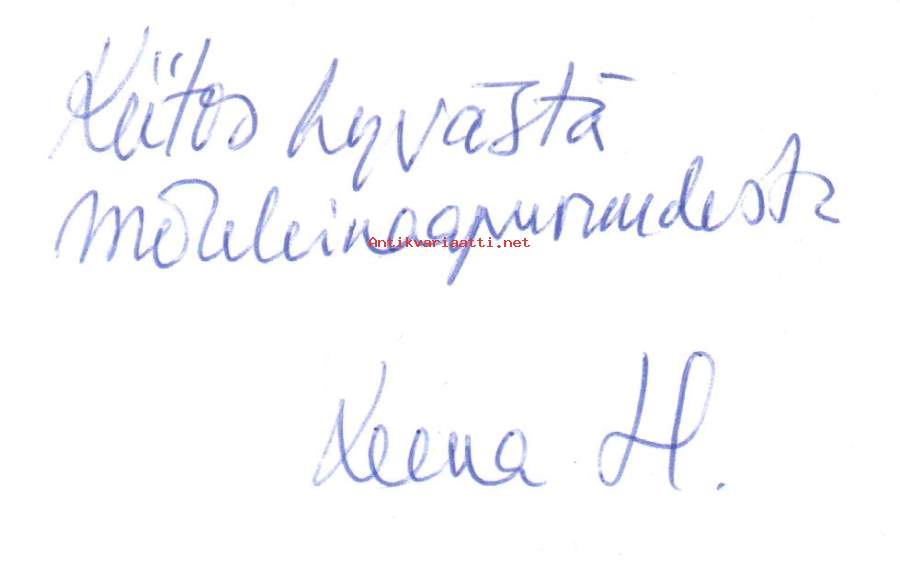 Kiitos hyvästä
mökkinaapuruudesta
Antikvariaatti.net
Leena H.